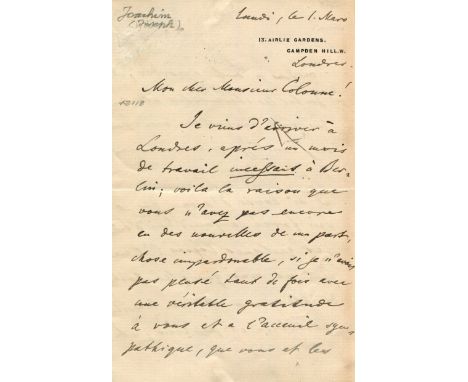 Joachim
(Joseph)
Lundi, le 1. Mars
13, AIRLIE GARDENS,
CAMPDEN HILL. W.
Londres.
Mon cher Monsieur Colonne!
Je viens d'arriver à
Londres, après un mois
de travail incessant à Ber-
lin; voilà la raison que
vous n'avez pas encore
eu des nouvelles de ma part,
chose impardonable, si je n'avais
pas pensé tant de fois avec
une véritable gratitude
à vous et a l'acceuil sym-
pathique, que vous et les